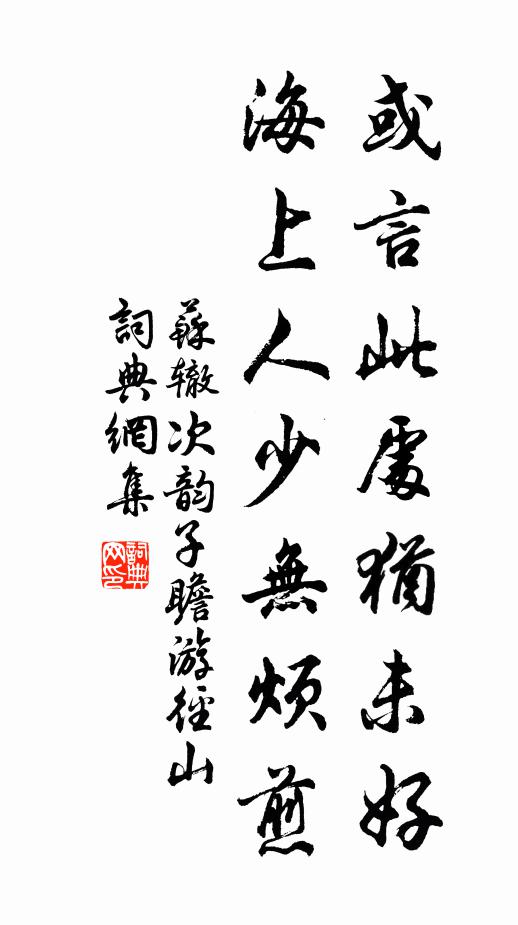 或言此處猶未好
海上人少無煩煎
蘇辙次韵子瞻游徑山
詞典網集
詞典網印